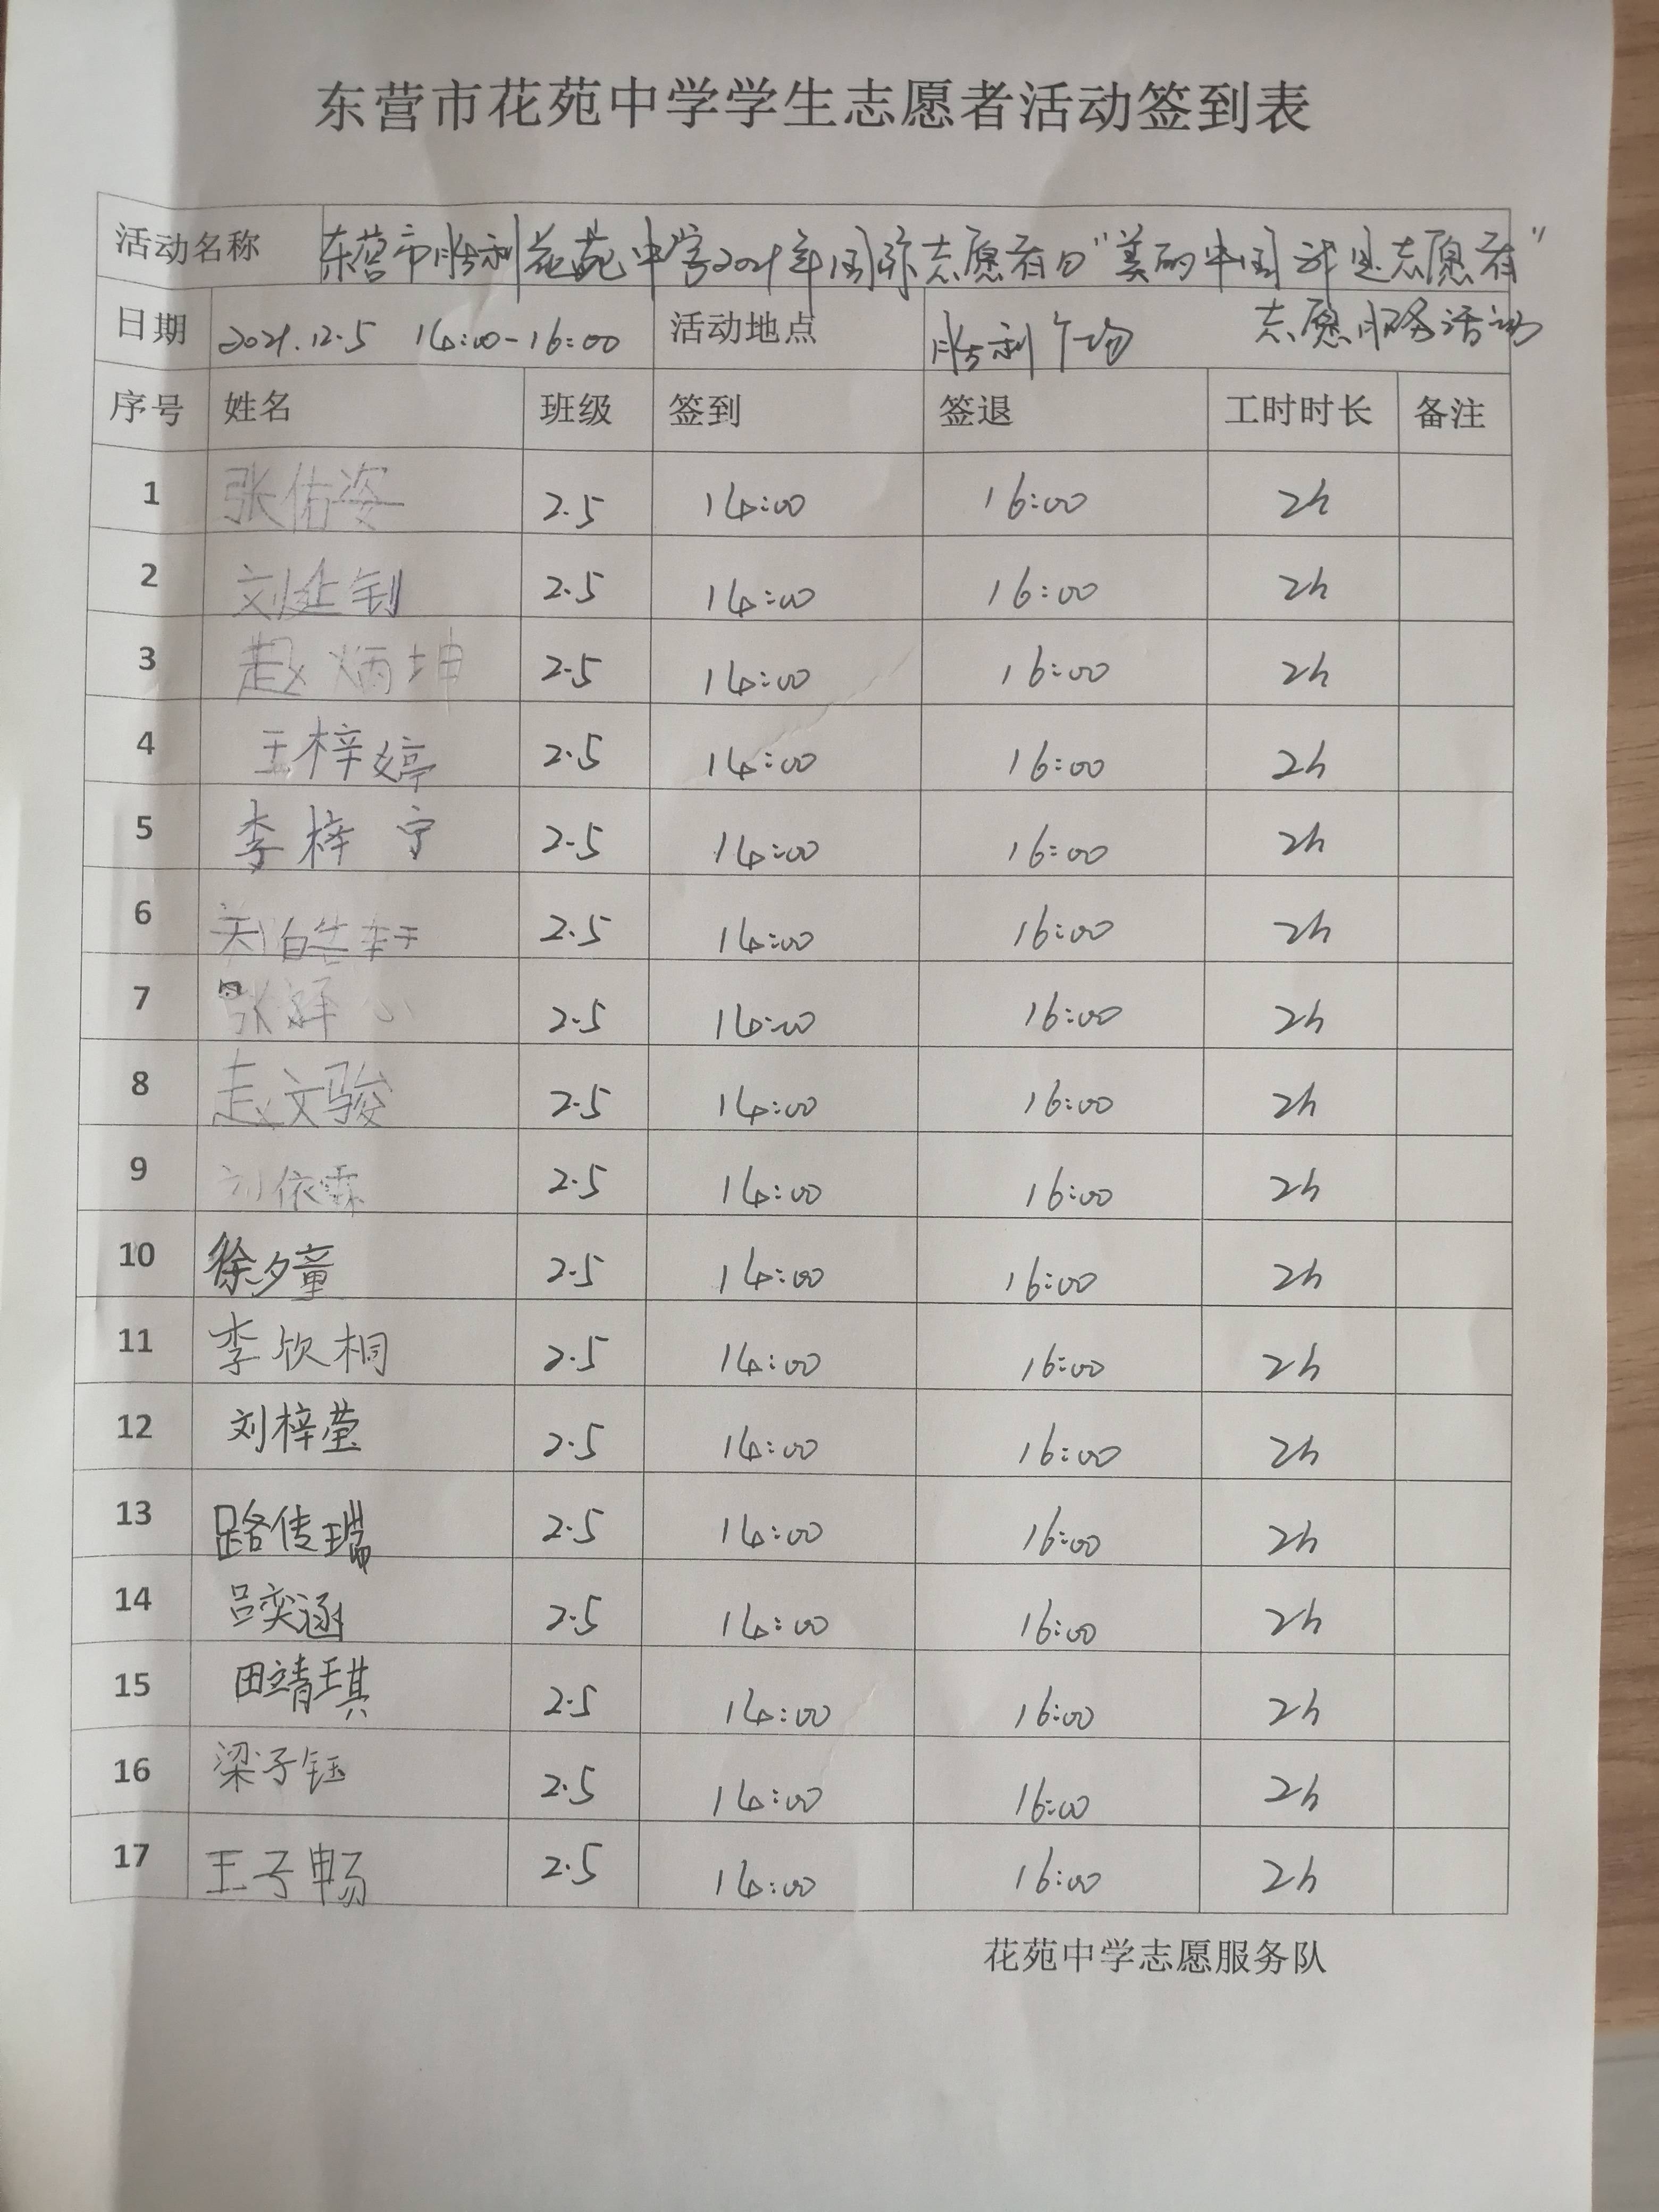 东营市花苑中学学生志愿者活动签到表
活动名称 东营市胜利花苑中学2021年国际志愿者日"美丽中国 我是志愿者"
志愿服务活动
日期 2021.12.5 14:00-16:00 活动地点 胜利广场
序号 姓名 班级 签到 签退 工时时长 备注
1 张佑姿 2.5 14:00 16:00 2h
2 2.5 14:00 16:00 2h
3 赵炳坤 2.5 14:00 16:00 2h
4 王梓婷 2.5 14:00 16:00 2h
5 李梓宁 2.5 14:00 16:00 2h
6 2.5 14:00 16:00 2h
7 2.5 14:00 16:00 2h
8 赵文骏 2.5 14:00 16:00 2h
9 刘依霖 2.5 14:00 16:00 2h
10 徐夕童 2.5 14:00 16:00 2h
11 李欣桐 2.5 14:00 16:00 2h
12 刘梓莹 2.5 14:00 16:00 2h
13 路传瑞 2.5 14:00 16:00 2h
14 吕奕涵 2.5 14:00 16:00 2h
15 田靖琪 2.5 14:00 16:00 2h
16 梁子钰 2.5 14:00 16:00 2h
17 王子畅 2.5 14:00 16:00 2h
花苑中学志愿服务队